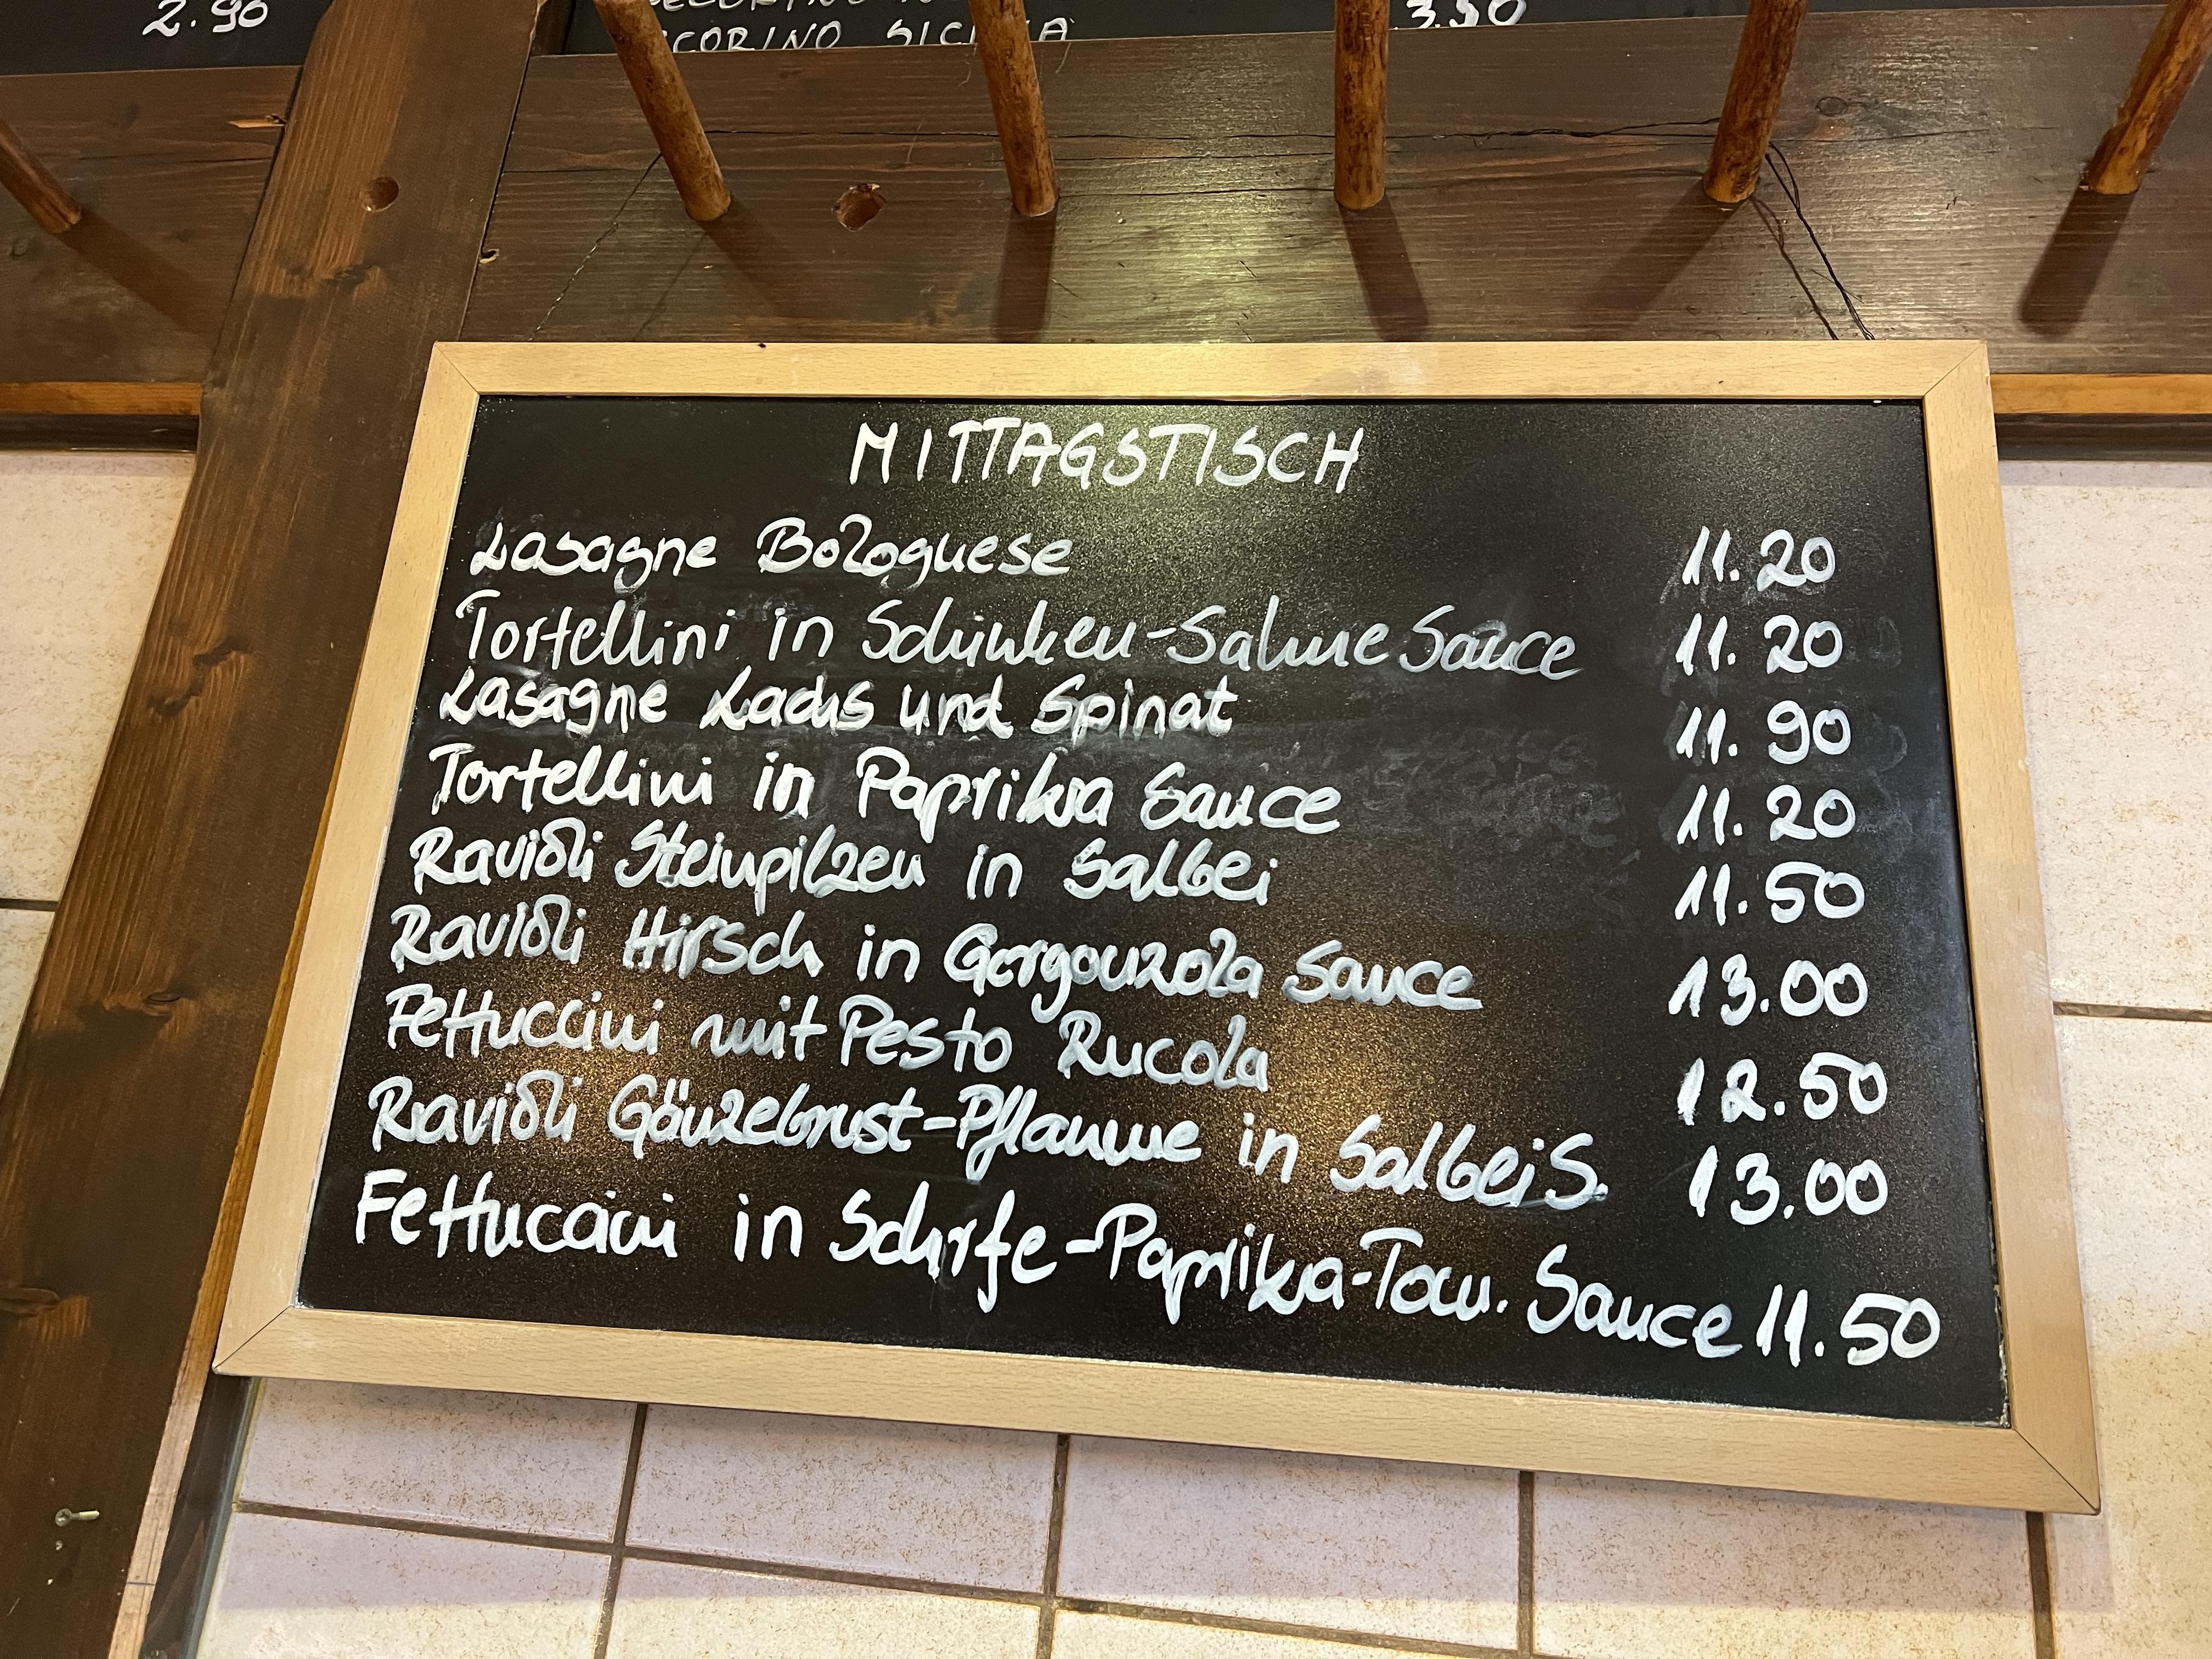 2.90
3.50
PECORINO SICILIA
MITTAGSTISCH
Lasagne Bolognese 11.20
Tortellini in Schinken-Sahne Sauce 11.20
Lasagne Lachs und Spinat 11.90
Tortellini in Paprika Sauce 11.20
Ravioli Steinpilzen in Salbei 11.50
Ravioli Hirsch in Gorgonzola Sauce 13.00
Fettuccini mit Pesto Rucola 12.50
Ravioli Gänzebrust-Pflaume in Salbei S. 13.00
Fettuccini in Schrfe-Paprika-Tom. Sauce 11.50